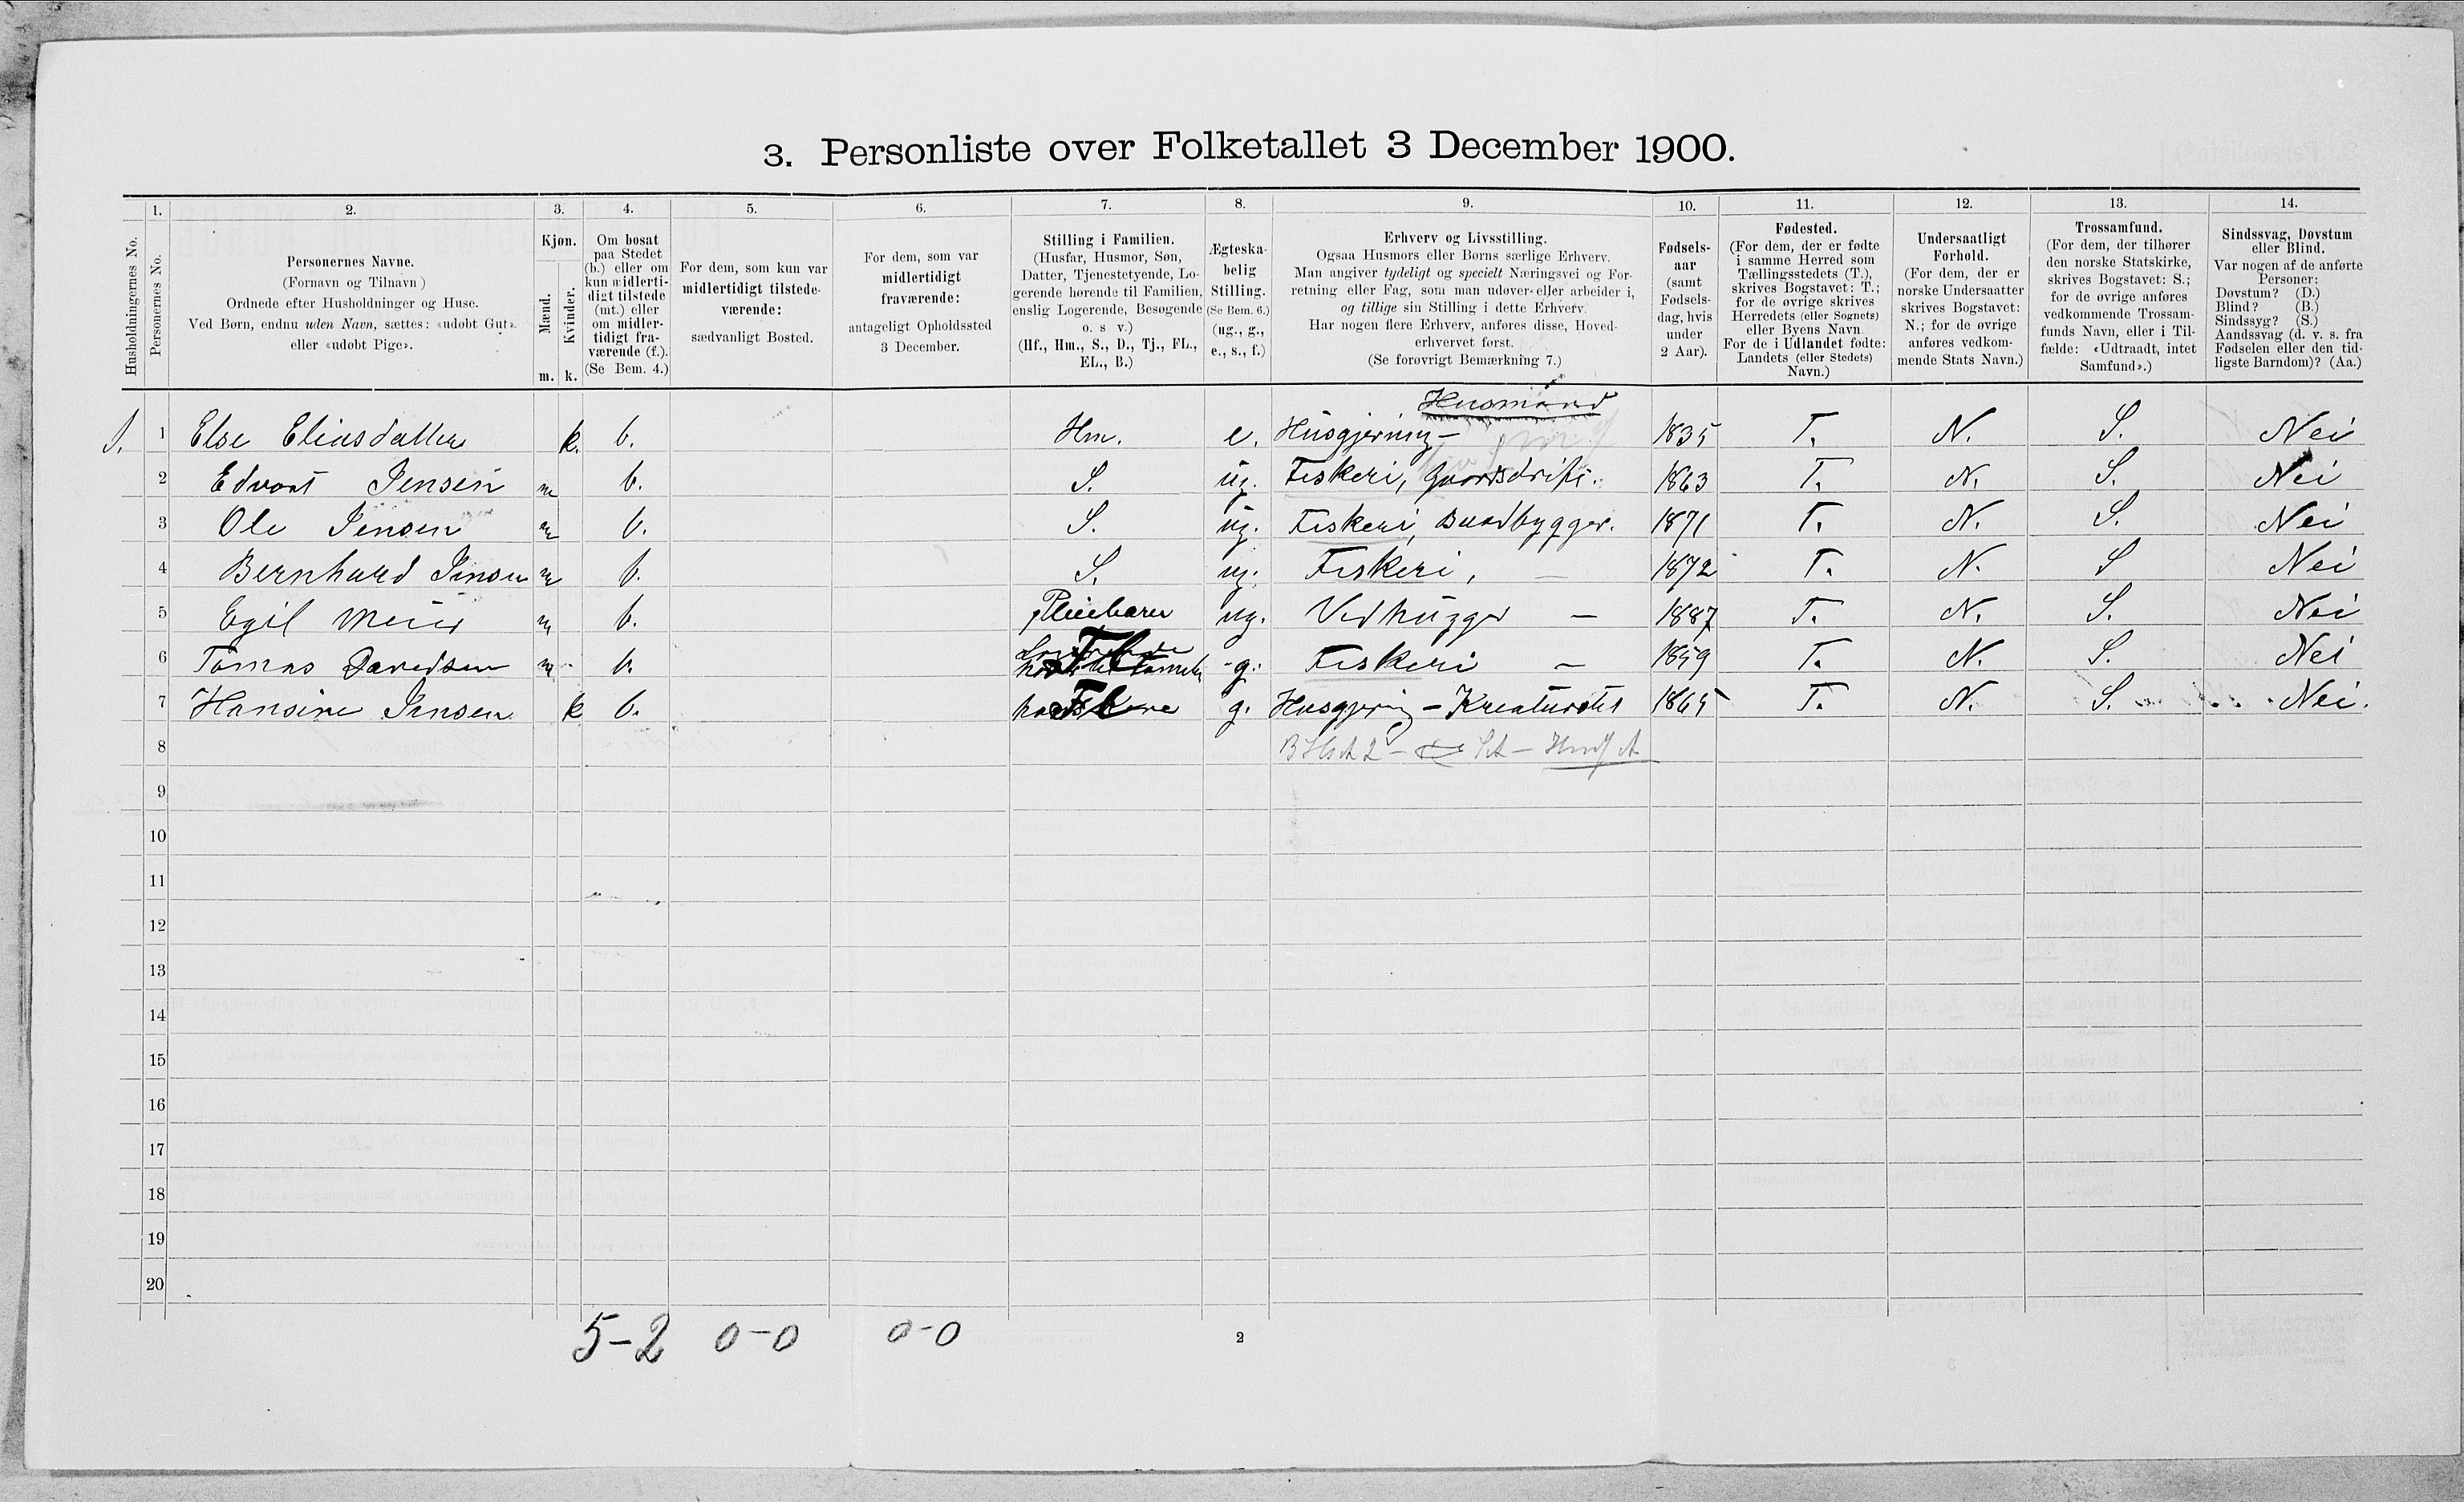 3. Personliste over Folketallet 3 December 1900.
Husholdningernes No.
1. Personernes No.
2. Personernes Navne.
(Fornavn og Tilnavn)
Ordnede efter Husholdninger og Huse.
Ved Børn, endnu uden Navn, sættes: «udøbt Gut»
eller «udøbt Pige».
3. Kjøn.
Mænd. m.
Kvinder. k.
4. Om bosat
paa Stedet
(b.) eller om
kun midlerti-
digt tilstede
(mt.) eller
om midler-
tidigt fra-
værende (f.).
(Se Bem. 4.)
5. For dem, som kun var
midlertidigt tilstede-
værende:
sædvanligt Bosted.
6. For dem, som var
midlertidigt
fraværende:
antageligt Opholdssted
3 December.
7. Stilling i Familien.
(Husfar, Husmor, Søn,
Datter, Tjenestetyende, Lo-
gerende hørende til Familien,
enslig Logerende, Besøgende
o. s v.)
(Hf., Hm., S., D., Tj., FL.,
EL., B.)
8. Ægteska-
belig
Stilling.
(Se Bem. 6.)
(ug., g.,
e., s., f.)
9. Erhverv og Livsstilling.
Ogsaa Husmors eller Børns særlige Erhverv.
Man angiver tydeligt og specielt Næringsvei og For-
retning eller Fag, som man udøver eller arbeider i,
og tillige sin Stilling i dette Erhverv.
Har nogen flere Erhverv, anføres disse, Hoved-
erhvervet først.
(Se forøvrigt Bemærkning 7.)
10. Fødsels-
aar
(samt
Fødsels-
dag, hvis
under
2 Aar).
11. Fødested.
(For dem, der er fødte
i samme Herred som
Tællingsstedets (T.),
skrives Bogstavet: T.;
for de øvrige skrives
Herredets (eller Sognets)
eller Byens Navn.
For de i Udlandet fødte:
Landets (eller Stedets)
Navn.)
12. Undersaatligt
Forhold.
(For dem, der er
norske Undersaatter
skrives Bogstavet:
N.; for de øvrige
anføres vedkom-
mende Stats Navn.)
13. Trossamfund.
(For dem, der tilhører
den norske Statskirke,
skrives Bogstavet: S.;
for de øvrige anføres
vedkommende Trossam-
funds Navn, eller i Til-
fælde: «Udtraadt, intet
Samfund».)
14. Sindssvag, Døvstum
eller Blind.
Var nogen af de anførte
Personer:
Døvstum? (D.)
Blind? (B.)
Sindssyg? (S.)
Aandssvag (d. v. s. fra
Fødselen eller den tid-
ligste Barndom)? (Aa.)
Husmand
1 Else Eliasdatter k. b. Hm. e. Husgjerning - 1835 T. N. S. Nei
2 Edvart Jensen m b. S. ug. Fiskeri, Gaardsdrift. 1863 T. N. S. Nei
3 Ole Jensen m b. S. ug. Fiskeri, Baadbygger. 1871 T. N. S. Nei
4 Bernhard Jensen m b. S. ug. Fiskeri, - 1872 T. N. S Nei
5 Egil Meier m b. Pleiebarn ug. Vedhugger - 1887 T. N. S. Nei
6 Tomas Davedsen m b. FL g. Fiskeri - 1859 T. N. S. Nei
7 Hansine Jensen k b. FL g. Husgjering - Kreaturstel 1865 T. N. S. Nei.
8
9
10
11
12
13
14
15
16
17
18
19
20
5-2 0-0 0-0
2